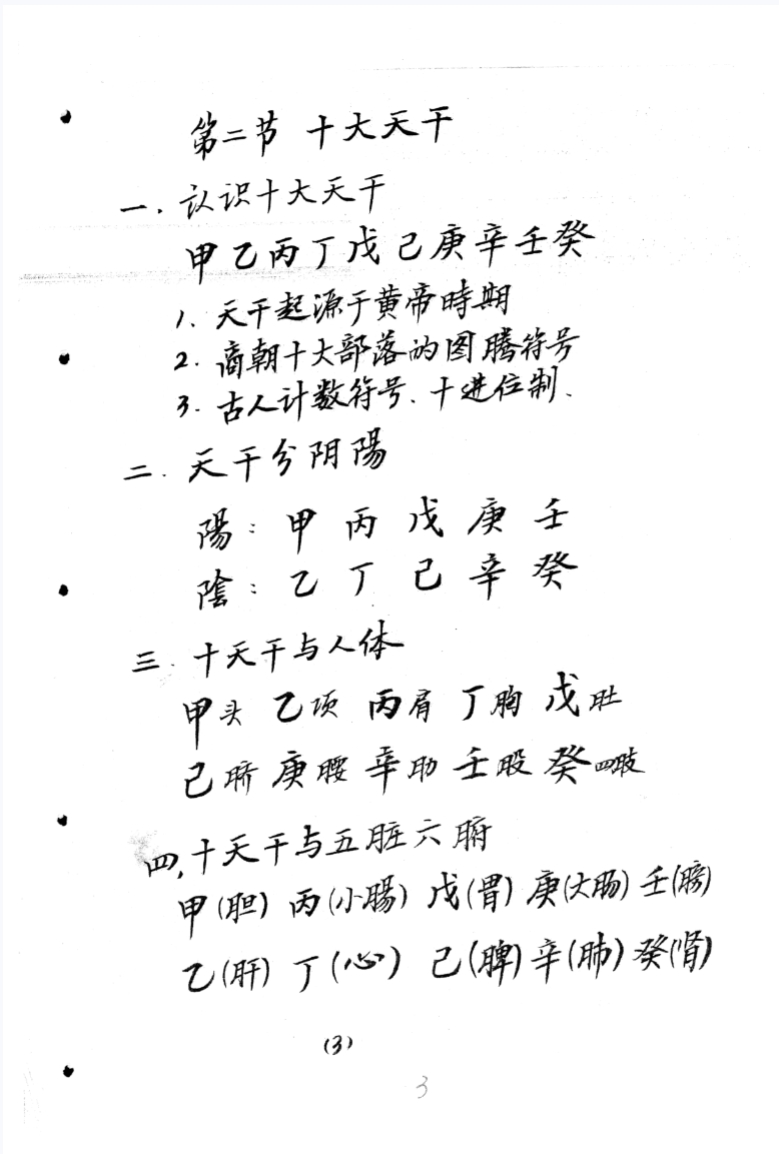 第二节 十大天干
一. 认识十大天干
甲乙丙丁戊己庚辛壬癸
1. 天干起源于黄帝時期
2. 商朝十大部落的图腾符号
3. 古人计数符号. 十进位制.
二. 天干分阴陽
陽: 甲 丙 戊 庚 壬
陰: 乙 丁 己 辛 癸
三. 十天干与人体
甲头 乙项 丙肩 丁胸 戊肚
己脐 庚腰 辛助 壬股 癸四肢
四, 十天干与五脏六腑
甲(胆) 丙(小腸) 戊(胃) 庚(大肠) 壬(膀)
乙(肝) 丁(心) 己(脾) 辛(肺) 癸(肾)
(3)
3